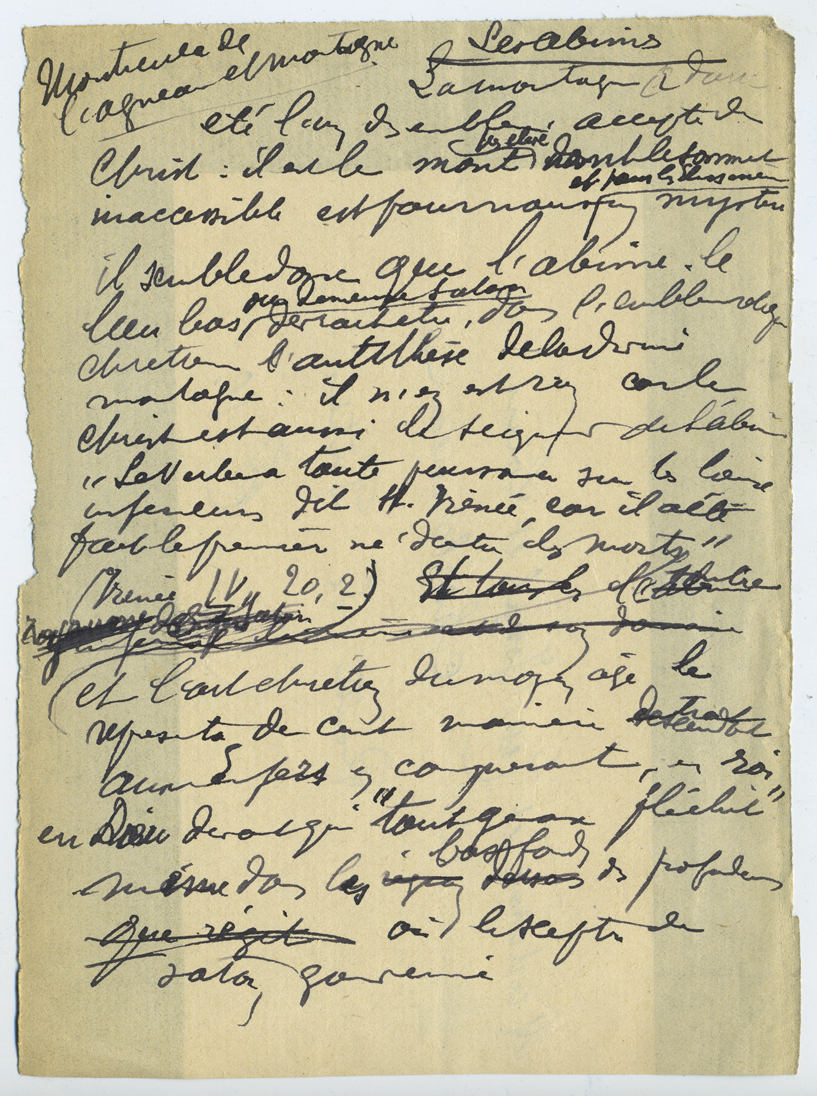 Monticule de
l'agneau et montagne
Les abîmes
La montagne a donc
été l'un des emblèmes acceptés du
Christ : il est le mont très élevé dont le sommet
et pour les
inaccessible est pour nous un mystère
il semble donc que l'abîme, le
lieu bas, où demeure Satan
devrait être, dans l'emblématique
chrétienne l'antithèse de la divine
montagne : il n'en est rien car le
Christ est aussi le Seigneur de l'abîme
"Le Verbe a toute puissance sur les lieux
inférieurs dit St. Irénée, car il a été
fait le premier né d'entre les morts"
(Irénée IV, 20, 2)
et l'art chrétien du moyen âge le
représenta de cent manières descendant
aux Enfers en conquérant, en roi,
en Dieu devant qui "tout genou fléchit"
même dans les bas fonds des profondeurs
que régit où le sceptre de
satan gouverne